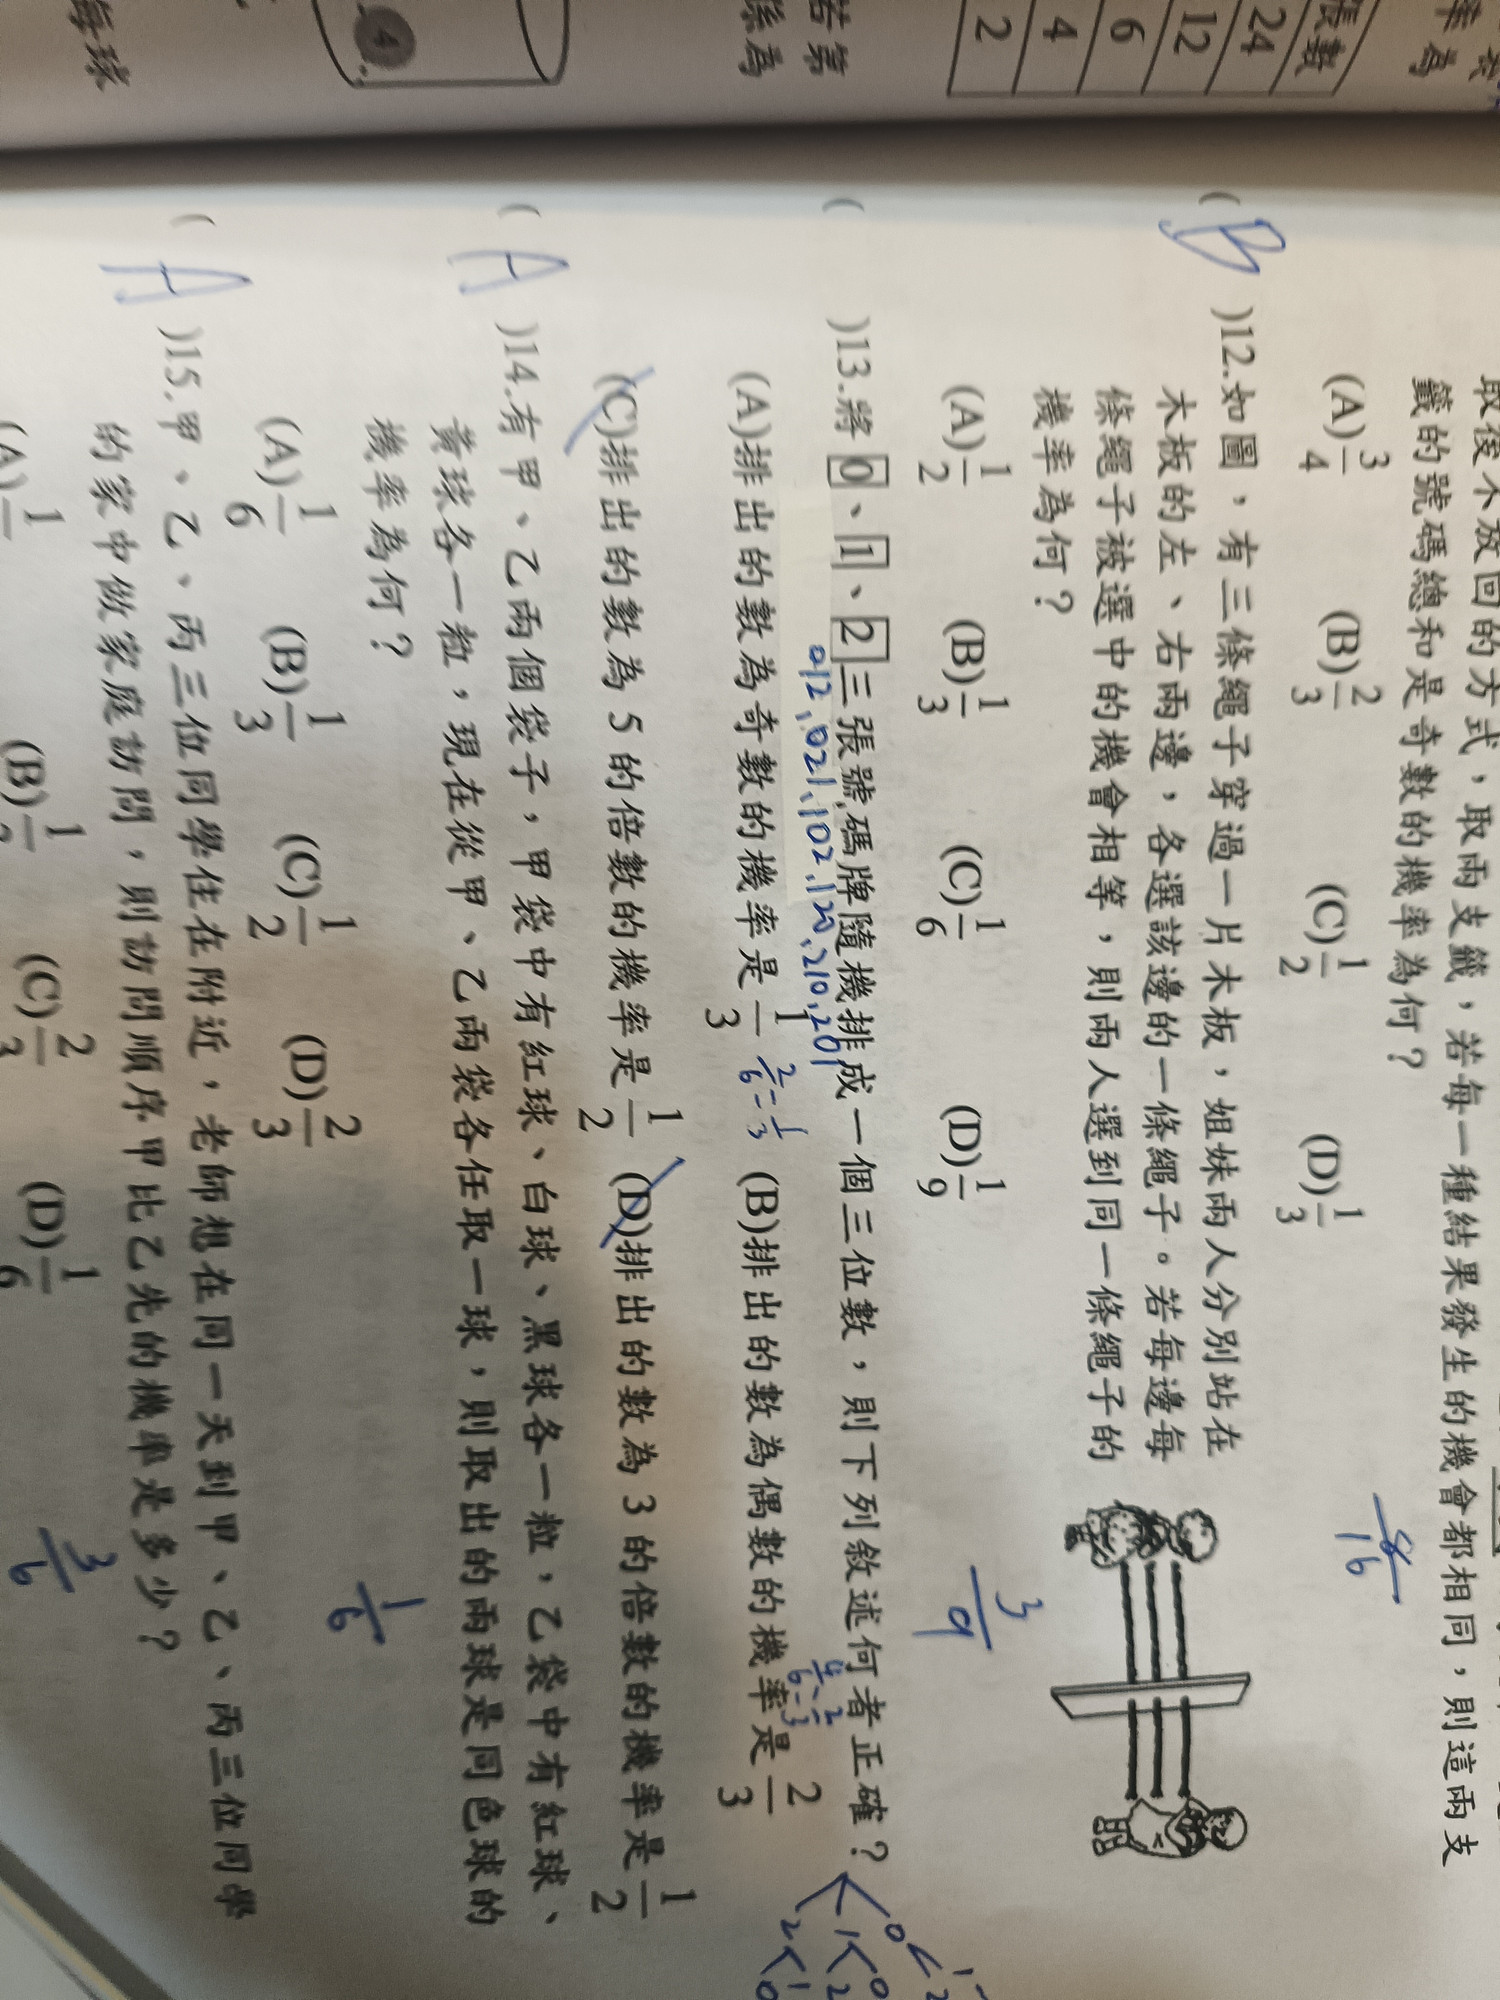 張數
24
12
6
4
2
率為
若第
係為
4
每球
取後不放回的方式，取兩支籤，若每一種結果發生的機會都相同，則這兩支
籤的號碼總和是奇數的機率為何？
(A)3/4 (B)2/3 (C)1/2 (D)1/3
8/16
( B )12.如圖，有三條繩子穿過一片木板，姐妹兩人分別站在
木板的左、右兩邊，各選該邊的一條繩子。若每邊每
條繩子被選中的機會相等，則兩人選到同一條繩子的
機率為何？
(A)1/2 (B)1/3 (C)1/6 (D)1/9
3/9
( )13.將0、1、2三張號碼牌隨機排成一個三位數，則下列敘述何者正確？
012,021,102,120,210,201
(A)排出的數為奇數的機率是1/3 (B)排出的數為偶數的機率是2/3
2/6=1/3
4/6=2/3
(C)排出的數為5的倍數的機率是1/2 (D)排出的數為3的倍數的機率是1/2
0 1 2
1 0 2
2 1 0
( A )14.有甲、乙兩個袋子，甲袋中有紅球、白球、黑球各一粒，乙袋中有紅球、
黃球各一粒，現在從甲、乙兩袋各任取一球，則取出的兩球是同色球的
機率為何？
(A)1/6 (B)1/3 (C)1/2 (D)2/3
1/6
( A )15.甲、乙、丙三位同學住在附近，老師想在同一天到甲、乙、丙三位同學
的家中做家庭訪問，則訪問順序甲比乙先的機率是多少？
3/6
(C)2/3 (D)1/6